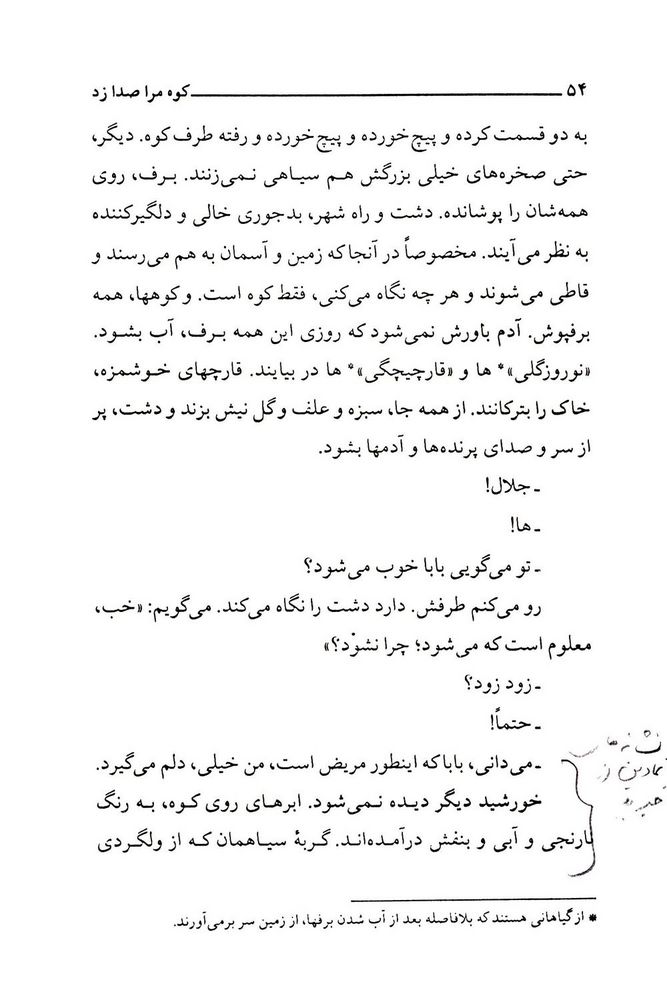 ۵۴ کوه مرا صدا زد
به دو قسمت کرده و پیچ خورده و پیچ خورده و رفته طرف کوه. دیگر،
حتی صخره‌های خیلی بزرگش هم سیاهی نمی‌زنند. برف، روی
همه‌شان را پوشانده. دشت و راه شهر، بدجوری خالی و دلگیرکننده
به نظر می‌آیند. مخصوصاً در آنجا که زمین و آسمان به هم می‌رسند و
قاطی می‌شوند و هر چه نگاه می‌کنی، فقط کوه است. و کوهها، همه
برفپوش. آدم باورش نمی‌شود که روزی این همه برف، آب بشود.
«نوروزگلی»* ها و «قارچیچگی»* ها در بیایند. قارچهای خوشمزه،
خاک را بترکانند. از همه جا، سبزه و علف و گل نیش بزند و دشت، پر
از سر و صدای پرنده‌ها و آدمها بشود.
ـ جلال!
ـ ها!
ـ تو می‌گویی بابا خوب می‌شود؟
رو می‌کنم طرفش. دارد دشت را نگاه می‌کند. می‌گویم: «خب،
معلوم است که می‌شود؛ چرا نشوْد؟»
ـ زود زود؟
ـ حتماً!
ـ می‌دانی، بابا که اینطور مریض است، من خیلی، دلم می‌گیرد.
خورشید دیگر دیده نمی‌شود. ابرهای روی کوه، به رنگ
نارنجی و آبی و بنفش درآمده‌اند. گربهٔ سیاهمان که از ولگردی
* از گیاهانی هستند که بلافاصله بعد از آب شدن برفها، از زمین سر برمی‌آورند.
نشانه‌های
نمادین از